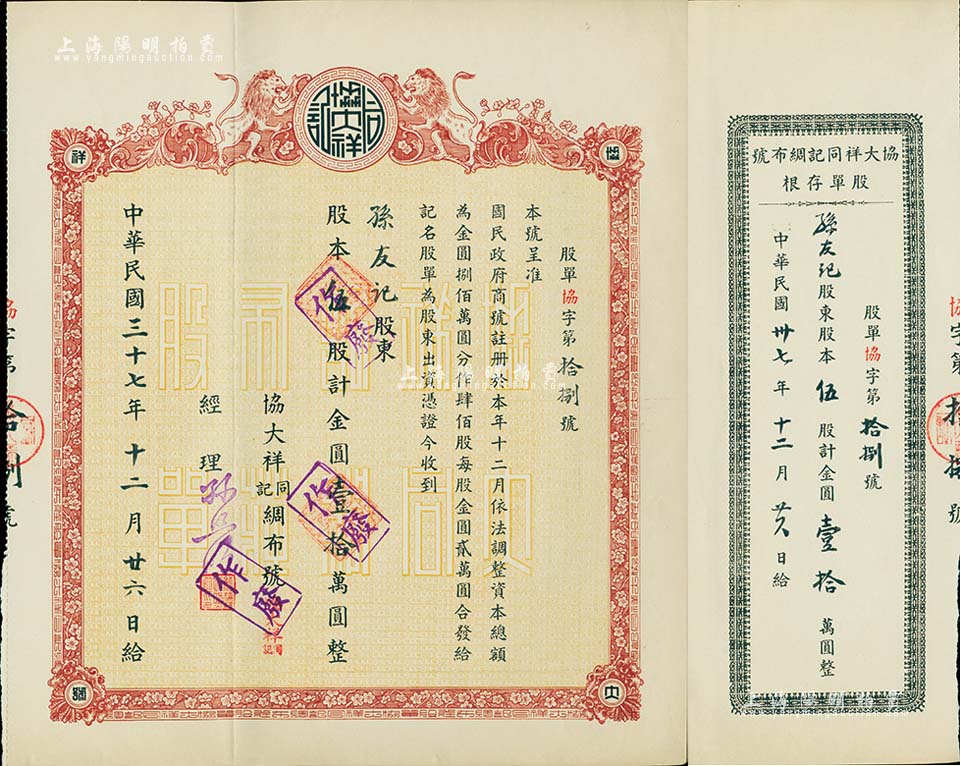 上海陽明拍賣
www.yangmingauction.com
協大祥
祥
股單協字第拾捌號
本號呈准
國民政府商號註册於本年十二月依法調整資本總額
為金圓捌佰萬圓分作肆佰股每股金圓貳萬圓合發給
記名股單為股東出資憑證今收到
孫友記股東
股本伍股計金圓壹拾萬圓整
協大祥同記綢布號
經理
中華民國三十七年十二月廿六日給
作廢
作廢
作廢
大
上海陽明拍賣
www.yangmingauction.com
協大祥同記綢布號
股單存根
股單協字第拾捌號
孫友記股東股本伍股計金圓壹拾萬圓整
中華民國卅七年十二月廿六日給
協字第拾捌號
協字第拾捌號
上海陽明拍賣
www.yangmingauction.com
上海陽明拍賣
www.yangmingauction.com